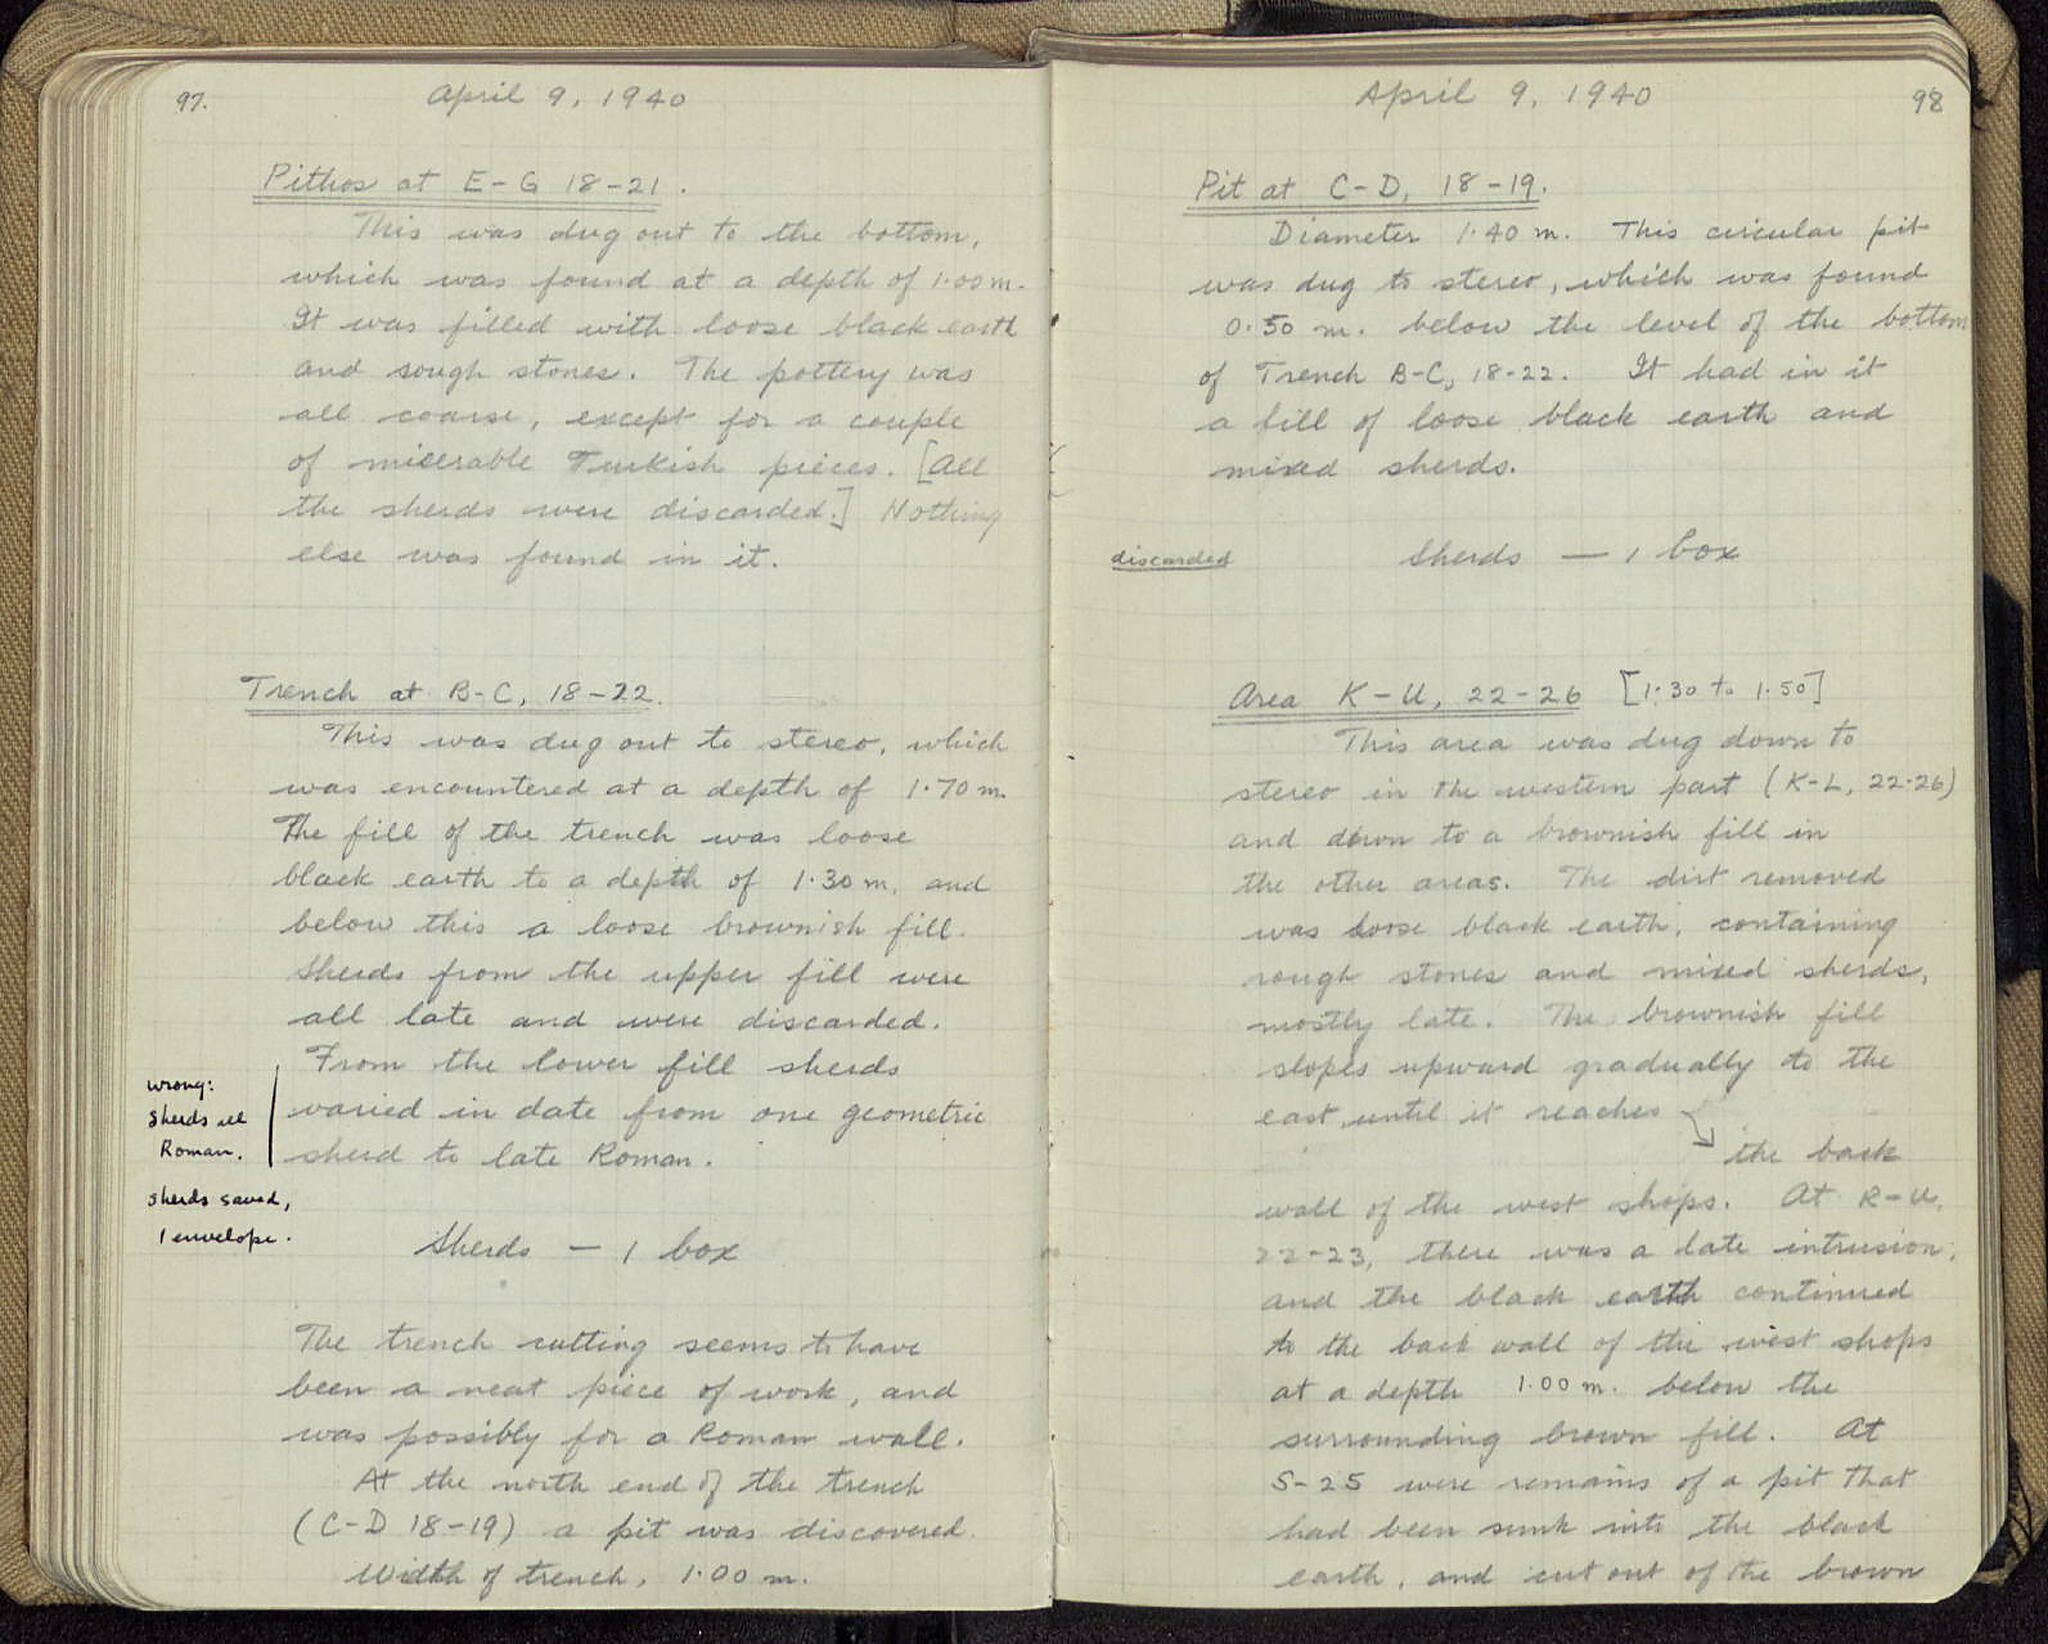 97.
April 9, 1940
Pithos at E-G 18-21.
This was dug out to the bottom,
which was found at a depth of 1.00 m.
It was filled with loose black earth
and rough stones. The pottery was
all coarse, except for a couple
of miserable Turkish pieces. [All
the sherds were discarded.] Nothing
else was found in it.
Trench at B-C, 18-22.
This was dug out to stereo, which
was encountered at a depth of 1.70 m.
The fill of the trench was loose
black earth to a depth of 1.30 m. and
below this a loose brownish fill.
Sherds from the upper fill were
all late and were discarded.
From the lower fill sherds
varied in date from one geometric
sherd to late Roman.
wrong:
Sherds all
Roman.
sherds saved,
1 envelope.
Sherds — 1 box
The trench cutting seems to have
been a neat piece of work, and
was possibly for a Roman wall.
At the north end of the trench
(C-D 18-19) a pit was discovered.
Width of trench, 1.00 m.
April 9, 1940
98
Pit at C-D, 18-19.
Diameter 1.40 m. This circular pit
was dug to stereo, which was found
0.50 m. below the level of the bottom
of Trench B-C, 18-22. It had in it
a fill of loose black earth and
mixed sherds.
discarded
Sherds — 1 box
Area K-U, 22-26 [1.30 to 1.50]
This area was dug down to
stereo in the western part (K-L, 22-26)
and down to a brownish fill in
the other areas. The dirt removed
was loose black earth, containing
rough stones and mixed sherds,
mostly late. The brownish fill
slopes upward gradually to the
east, until it reaches
the back
wall of the west shops. At R-U,
22-23, there was a late intrusion,
and the black earth continued
to the back wall of the west shops
at a depth 1.00 m. below the
surrounding brown fill. At
S-25 were remains of a pit that
had been sunk into the black
earth, and cut out of the brown